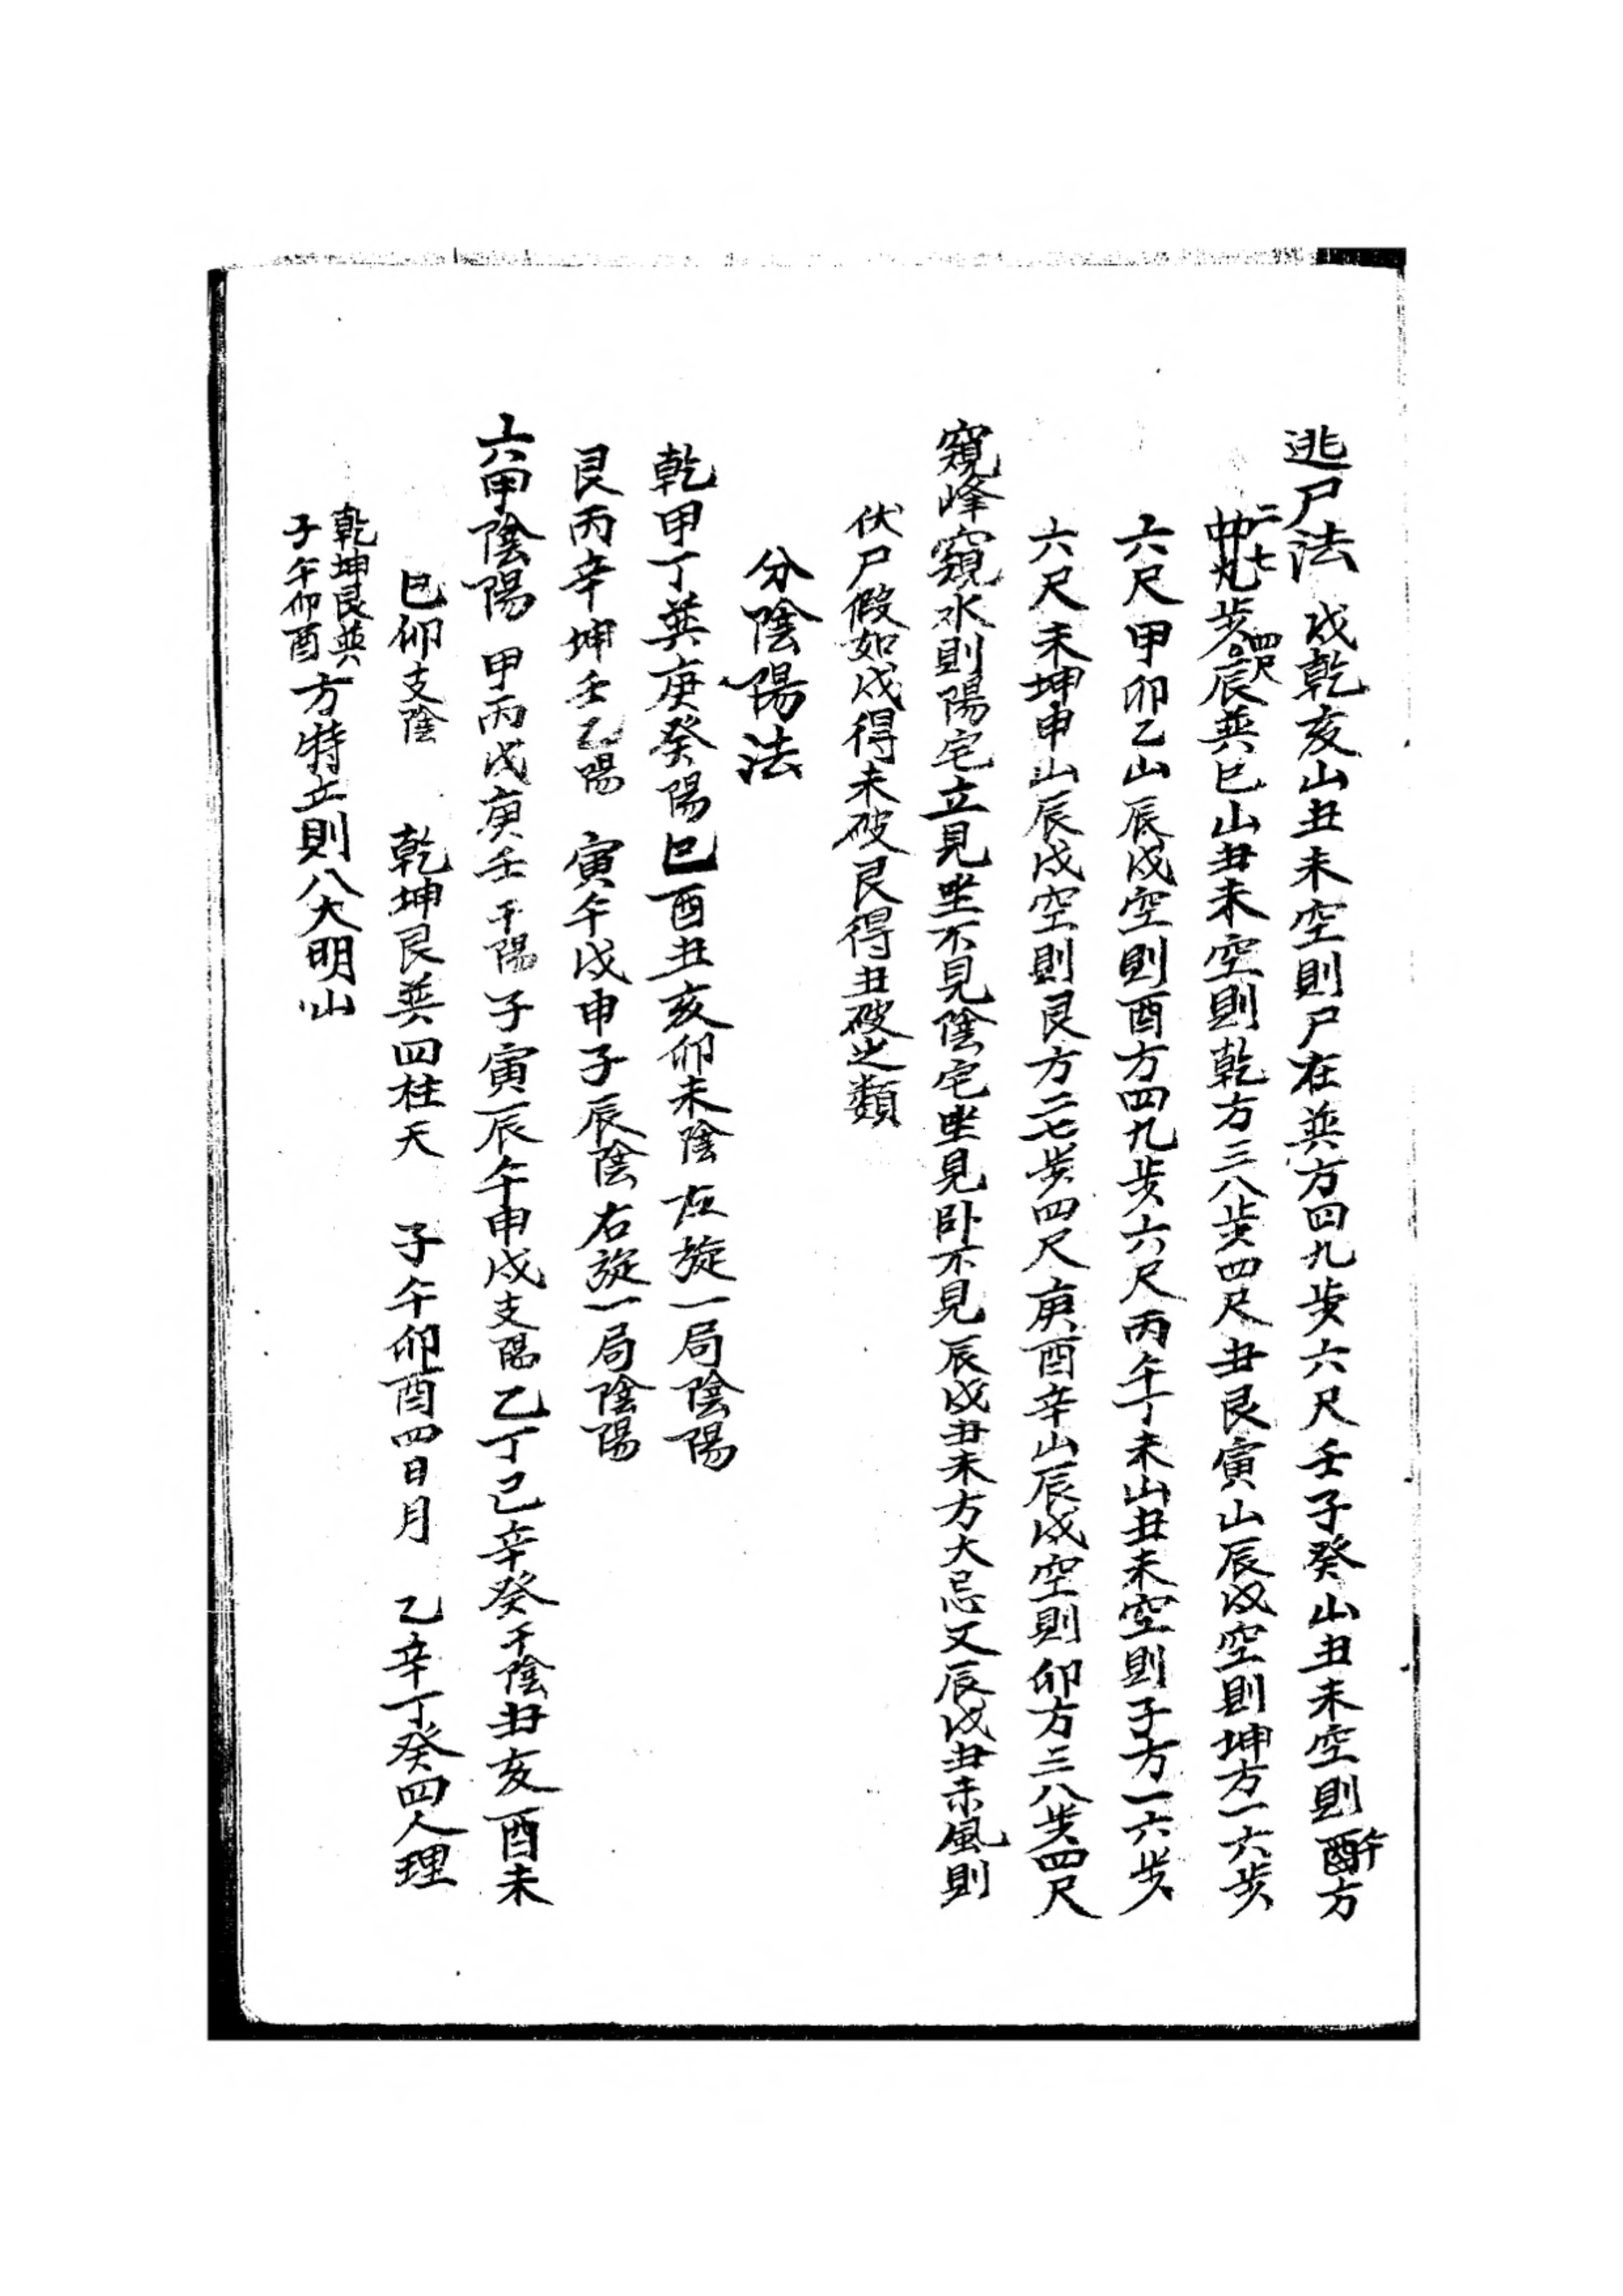 逃尸法 戌乾亥山丑未空則尸在巽方四九步六尺壬子癸山丑未空則午方
二七步四尺辰巽巳山丑未空則乾方三八步四尺丑艮寅山辰戌空則坤方一六步
六尺甲卯乙山辰戌空則酉方四九步六尺丙午丁未山丑未空則子方一六步
六尺未坤申山辰戌空則艮方二七步四尺庚酉辛山辰戌空則卯方三八步四尺
窺峰窺水則陽宅立見坐不見陰宅坐見卧不見辰戌丑未方大忌又辰戌丑未風則
伏尸假如戌得未破艮得丑破之類
分陰陽法
乾甲丁巽庚癸陽巳酉丑亥卯未陰左旋一局陰陽
艮丙辛坤壬乙陽 寅午戌申子辰陰右旋一局陰陽
六甲陰陽 甲丙戊庚壬干陽子寅辰午申戌支陽乙丁己辛癸干陰丑亥酉未
巳卯支陰 乾坤艮巽四柱天 子午卯酉四日月 乙辛丁癸四人理
乾坤艮巽
子午卯酉方特立則八大明山